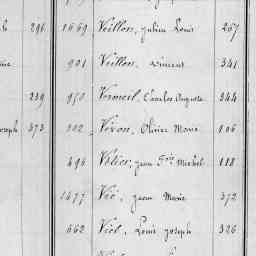 296 1669 Veillon, Julien Louis 267
901 Veillon, Vincent 341
239 950 Vermeil, Charles Auguste 344
oseph 373 102 Véron, Olivier Marie 106
496 Vétier, Jean Fois Michel 118
1477 Vié, Jean Marie 372
662 Viel, Louis Joseph 326